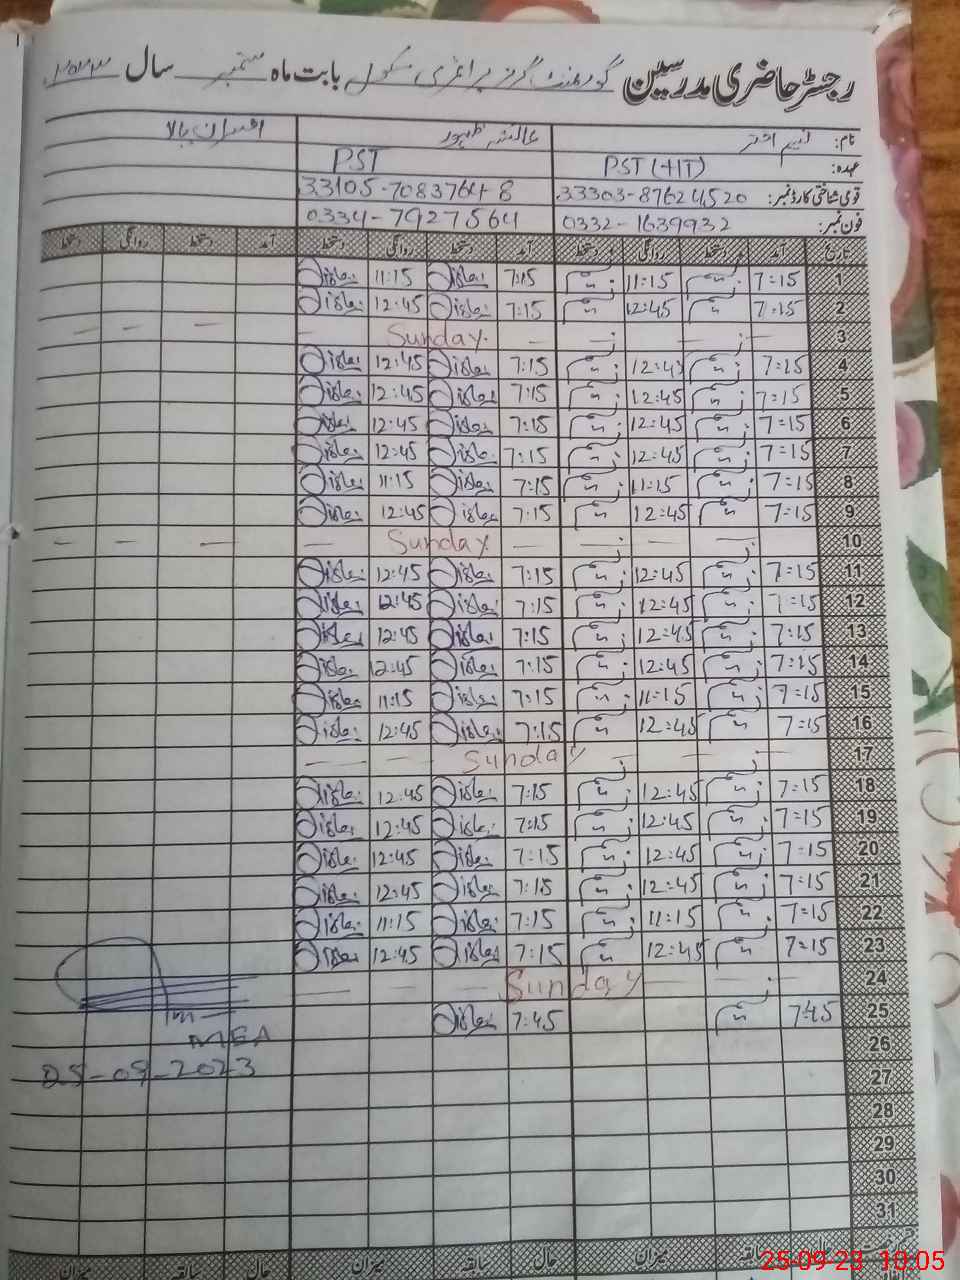 رجسٹر حاضری مدرسین گورنمنٹ گرلز پرائمری سکول بابت ماہ ستمبر سال ۲۰۲۳
نام: نسیم اختر عائشہ ظہور افسران بالا
عہدہ: PST (HT) PST
قومی شناختی کارڈ نمبر: 33303-87624520 33105-7083764-8
فون نمبر: 0332-1639932 0334-7927564
تاریخ آمد دستخط روانگی دستخط آمد دستخط روانگی دستخط آمد دستخط روانگی دستخط
1 7:15 11:15 7:15 11:15
2 7:15 12:45 7:15 12:45
3 Sunday
4 7:15 12:45 7:15 12:45
5 7:15 12:45 7:15 12:45
6 7:15 12:45 7:15 12:45
7 7:15 12:45 7:15 12:45
8 7:15 11:15 7:15 11:15
9 7:15 12:45 7:15 12:45
10 Sunday
11 7:15 12:45 7:15 12:45
12 7:15 12:45 7:15 12:45
13 7:15 12:45 7:15 12:45
14 7:15 12:45 7:15 12:45
15 7:15 11:15 7:15 11:15
16 7:15 12:45 7:15 12:45
17 Sunday
18 7:15 12:45 7:15 12:45
19 7:15 12:45 7:15 12:45
20 7:15 12:45 7:15 12:45
21 7:15 12:45 7:15 12:45
22 7:15 11:15 7:15 11:15
23 7:15 12:45 7:15 12:45
24 Sunday
25 7:45 7:45
26 MEA
27 25-09-2023
28
29
30
31
سابقہ حال میزان سابقہ حال میزان حال میزان
25-09-23 10:05